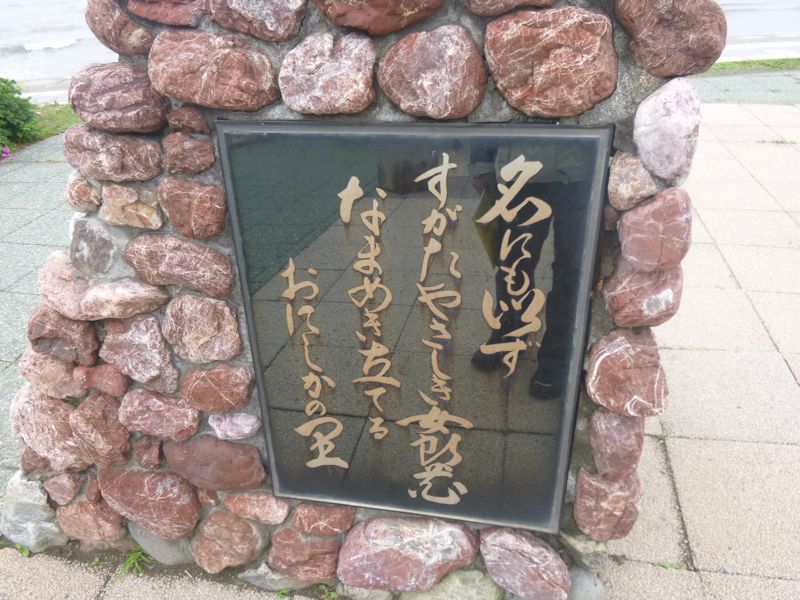 名にも似ず
すがたやさしき女郎花
なまめき立てる
おにしかの里